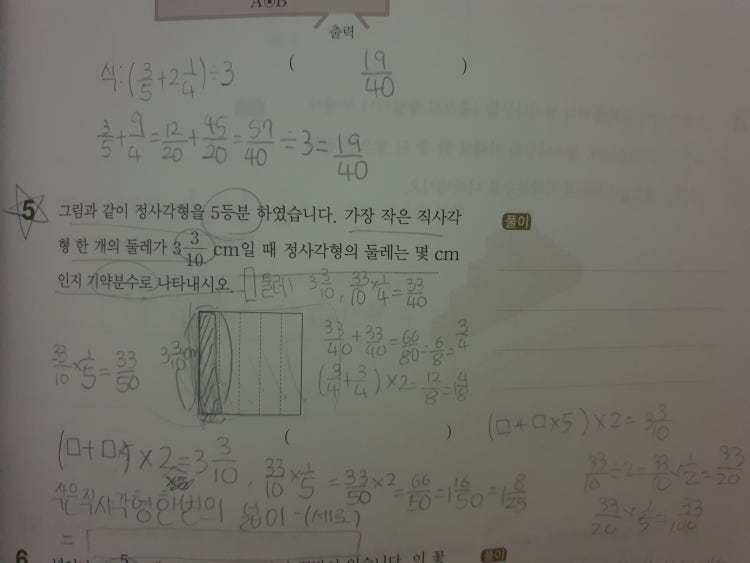 A⊙B
출력
식:(3/5+2 1/4)÷3
( 19/40 )
3/5+9/4=12/20+45/20=57/40÷3=19/40
5 그림과 같이 정사각형을 5등분 하였습니다. 가장 작은 직사각
형 한 개의 둘레가 3 3/10 cm일 때 정사각형의 둘레는 몇 cm
인지 기약분수로 나타내시오.
풀이
둘레 3 3/10, 33/10×1/4=33/40
33/40+33/40=66/80=6/8=3/4
(3/4+3/4)×2=12/8=1 4/8
33/10×1/5=33/50
3 3/10 cm
( )
(□+□×5)×2=3 3/10
×2=3 3/10, 33/10×1/5=33/50×2=66/50=1 16/50=1 8/25
33/10÷2=33/10×1/2=33/20
33/20×1/5=33/100
작은직사각형한변의 넓이-(세로)
=
6
풀이